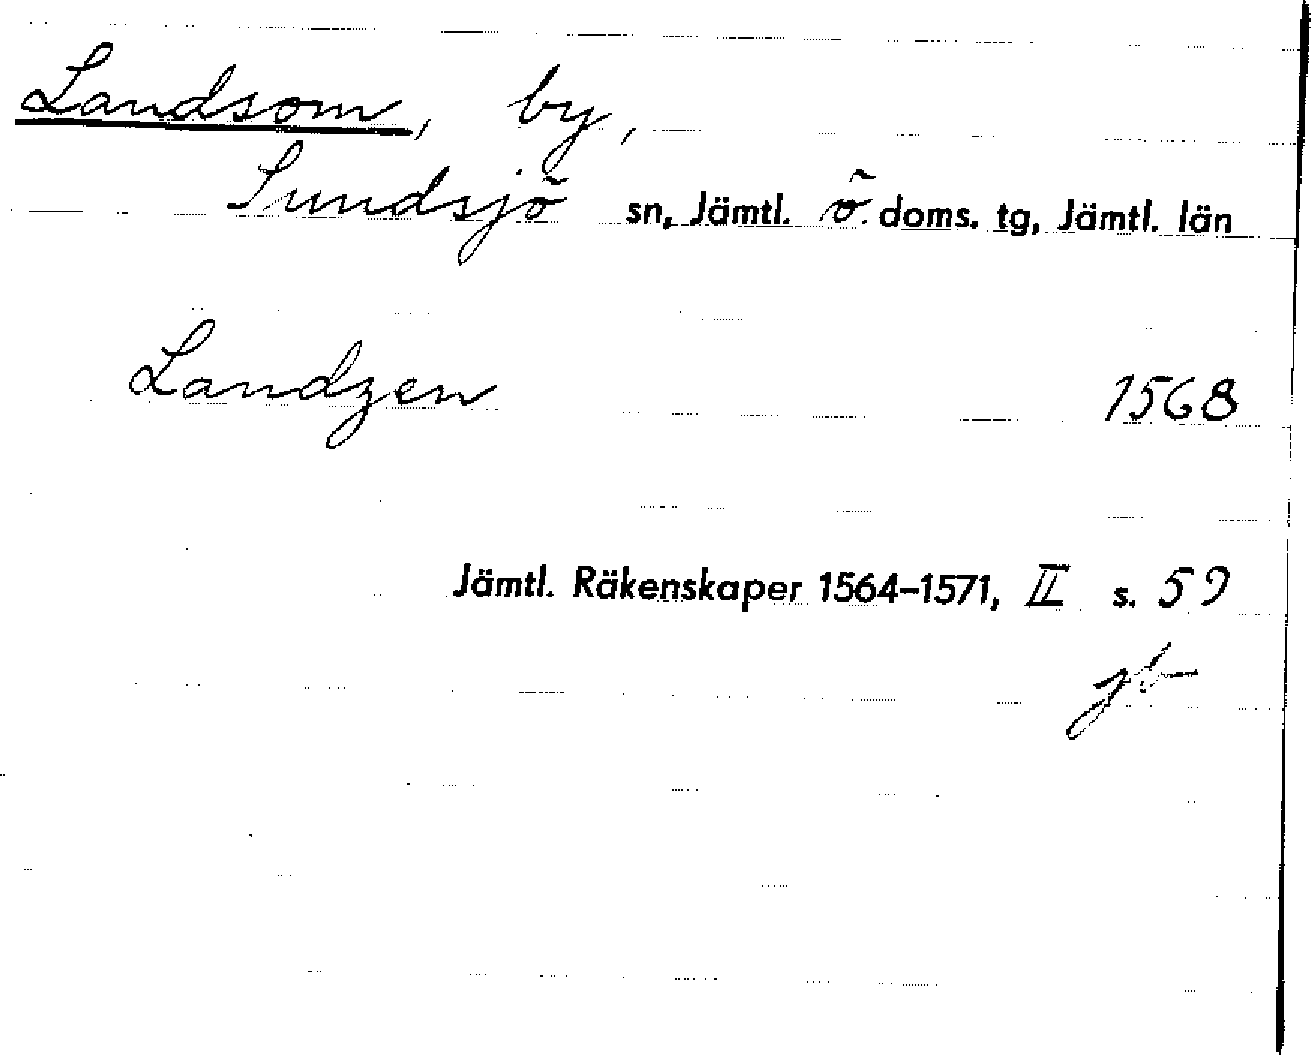 Landsom, by,
Sundsjö sn, Jämtl. ö. doms. tg, Jämtl. län
Landzen 1568
Jämtl. Räkenskaper 1564–1571, II s. 59